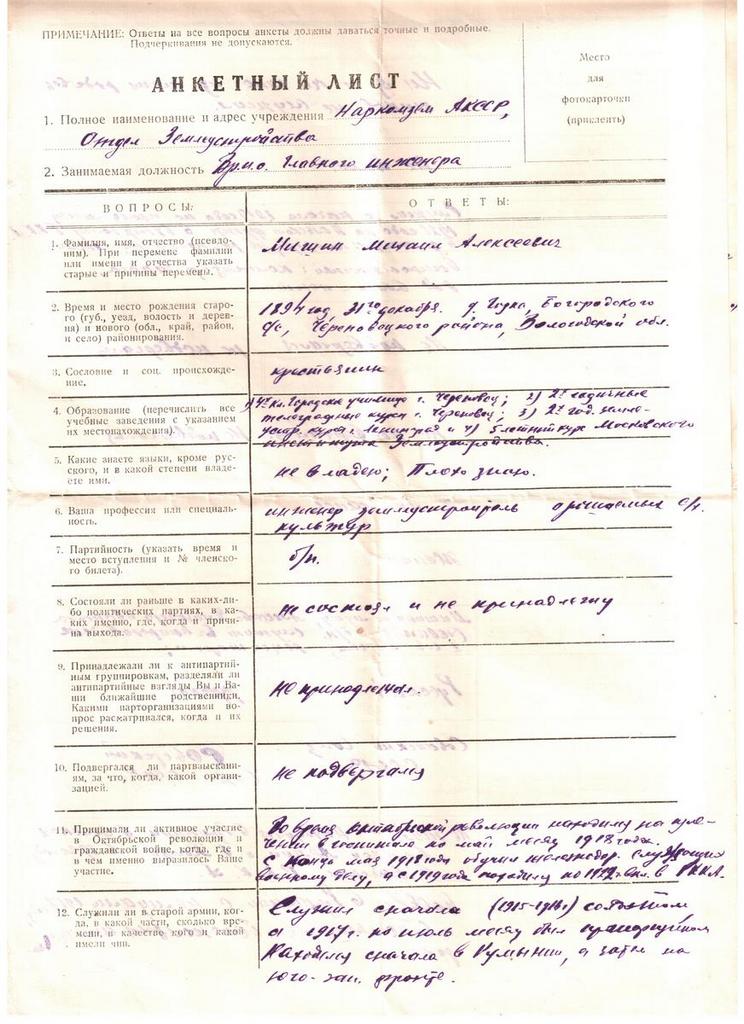 ПРИМЕЧАНИЕ: Ответы на все вопросы анкеты должны даваться точные и подробные.
Подчеркивания не допускаются.
Место
для
фотокарточки
(приклеить)
АНКЕТНЫЙ ЛИСТ
1. Полное наименование и адрес учреждения Наркомзем АКССР,
Отдел Землеустройства
2. Занимаемая должность Врио. Главного инженера
ВОПРОСЫ:
ОТВЕТЫ:
1. Фамилия, имя, отчество (псевдо-
ним). При перемене фамилии
или имени и отчества указать
старые и причины перемены.
Мишин Михаил Алексеевич
2. Время и место рождения старо-
го (губ., уезд, волость и дерев-
ня) и нового (обл., край, район,
и село) районирования.
1894 год 31го декабря. д. Богородского
с/с, Череповецкого района, Вологодской обл.
3. Сословие и соц. происхожде-
ние.
крестьянин
4. Образование (перечислить все
учебные заведения с указанием
их местонахождения).
1) 4х кл. Городское училище г. Череповец; 2) 2х годичные
телеграфные курсы г. Череповец; 3) 2х год. земле-
устр. курсы Ленинград и 4) 5 летний курс Московского
института Землеустройства.
5. Какие знаете языки, кроме рус-
ского, и в какой степени владе-
ете ими.
не владею; Плохо знаю.
6. Ваша профессия или специаль-
ность.
инженер землеустроитель орошаемых с/х.
культур
7. Партийность (указать время и
место вступления и № членско-
го билета).
б/п.
8. Состояли ли раньше в каких-ли-
бо политических партиях, в ка-
ких именно, где, когда и причи-
на выхода.
не состоял и не принадлежу
9. Принадлежали ли к антипартий-
ным группировкам, разделяли ли
антипартийные взгляды Вы и Ва-
ши ближайшие родственники.
Какими парторганизациями во-
прос расматривался, когда и их
решения.
не принадлежал.
10. Подвергался ли партвзыскани-
ям, за что, когда, какой органи-
зацией.
не подвергался
11. Принимали ли активное участие
в Октябрьской революции и
гражданской войне, когда, где и
в чем именно выразилось Ваше
участие.
Во время октябрской революции находился на изле-
чении в госпитале по май месяц 1918 года.
С конца мая 1918 года обучал железнодор. служащих
военному делу, а с 1919 года по 1922 вкл. в РККА.
12. Служили ли в старой армии, ког-
да, в какой части, сколько вре-
мени, в качестве кого и какой
имели чин.
Служил сначала (1915-1916г) солдатом
а 1917г. по июль месяц был прапорщиком
Находился сначала в Румынии, а затем на
юго-зап. фронте.